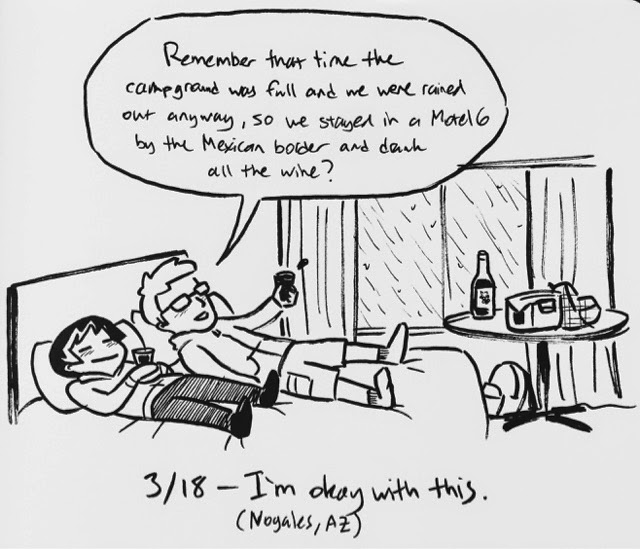 Remember that time the
campground was full and we were rained
out anyway, so we stayed in a Motel 6
by the Mexican border and drank
all the wine?
3/18 – I'm okay with this.
(Nogales, AZ)